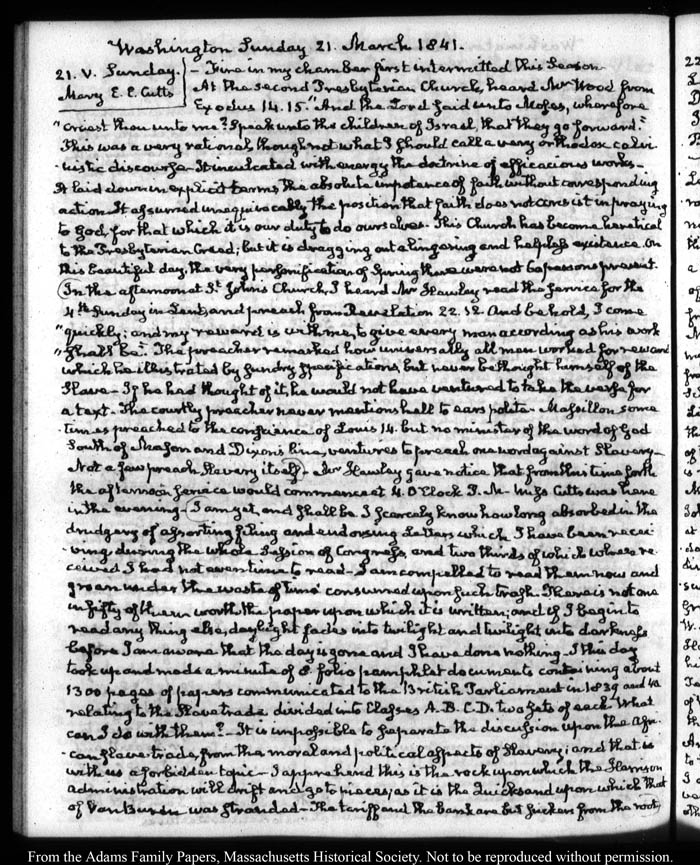 Washington Sunday 21. March 1841.
21. V. Sunday. – Fire in my chamber first intermitted this Season
Mary E. E. Cutts At the second Presbyterian Church, heard Mr Wood from
Exodus 14.15. "And the Lord said unto Moses, wherefore
"criest thou unto me? Speak unto the children of Israel, that they go forward."
This was a very rational, though not what I should call a very orthodox calvi-
-nistic discourse. It inculcated with energy the doctrine of efficacious works–
It laid down in explicit terms the absolute impotence of faith without corresponding
action. It assumed unequivocally the position that faith does not consist in praying
to God, for that which it is our duty to do ourselves. This Church has become heretical
to the Presbyterian Creed; but it is dragging out a lingering and helpless existence. On
this beautiful day, the very personification of Spring there were not 60 persons present.
In the afternoon at St. John's Church, I heard Mr Hawley read the service for the
4th Sunday in Lent, and preach from Revelation 22.12. And behold, I come
"quickly; and my reward is with me, to give every man according as his work
"shall be". The preacher remarked how universally all men worked for reward
which he illustrated by sundry specifications, but never bethought himself of the
Slave– If he had thought of it, he would not have ventured to take the verse for
a text– The courtly preacher never mentions hell to ears polite– Massillon some
-times preached to the conscience of Louis 14. but no minister of the word of God
South of Mason and Dixon's line, ventures to preach one word against Slavery–
Not a few preach Slavery itself– Mr Hawley gave notice that from this time forth
the afternoon service would commence at 4. O'Clock P.M. Miss Cutts was here
in the evening– I am yet, and shall be I scarcely know how long absorbed in the
drudgery of assorting filing and endorsing Letters which I have been recei-
-ving during the whole Session of Congress, and two thirds of which when re-
ceived I had not even time to read– I am compelled to read them now and
groan under the waste of time consumed upon such trash. There is not one
in fifty of them worth the paper upon which it is written; and if I begin to
read any thing else, daylight fades into twilight and twilight into darkness
before I am aware that the day is gone and I have done nothing– I this day
took up and made a minute of 8 folio pamphlet documents containing about
1300 pages of papers communicated to the British Parliament in 1839 and 40
relating to the Slave trade divided into Classes A. B. C. D. two sets of each. What
can I do with them?– It is impossible to separate the discussion upon the Afri-
-can slave trade, from the moral and political aspects of Slavery; and that is
with us a forbidden topic– I apprehend this is the rock upon which the Harrison
administration will drift and go to pieces, as it is the Quicksand upon which that
of Van Buren was stranded– The tariff and the Bank are but suckers from the root,
From the Adams Family Papers, Massachusetts Historical Society. Not to be reproduced without permission.